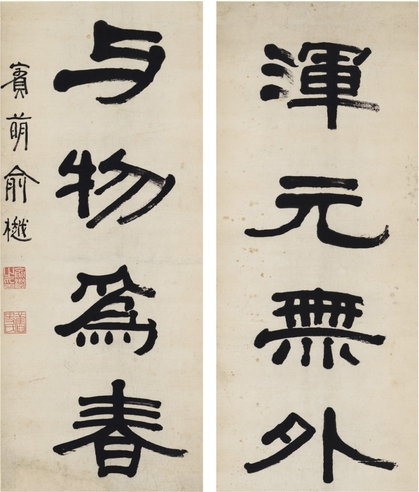 渾元無外
与物為春
賓萌俞樾